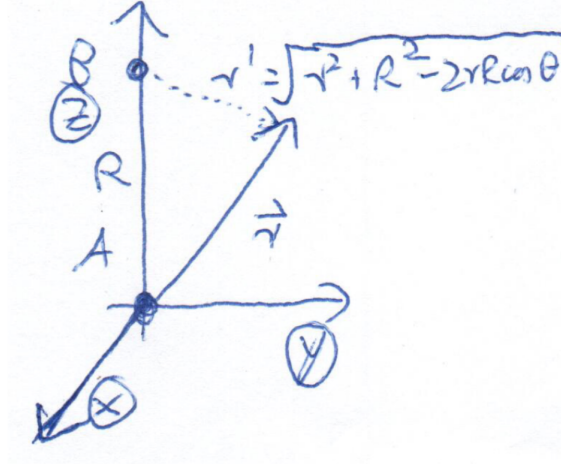 B r' = √r² + R² - 2rR cos θ
Z
R
A r⃗
y
x